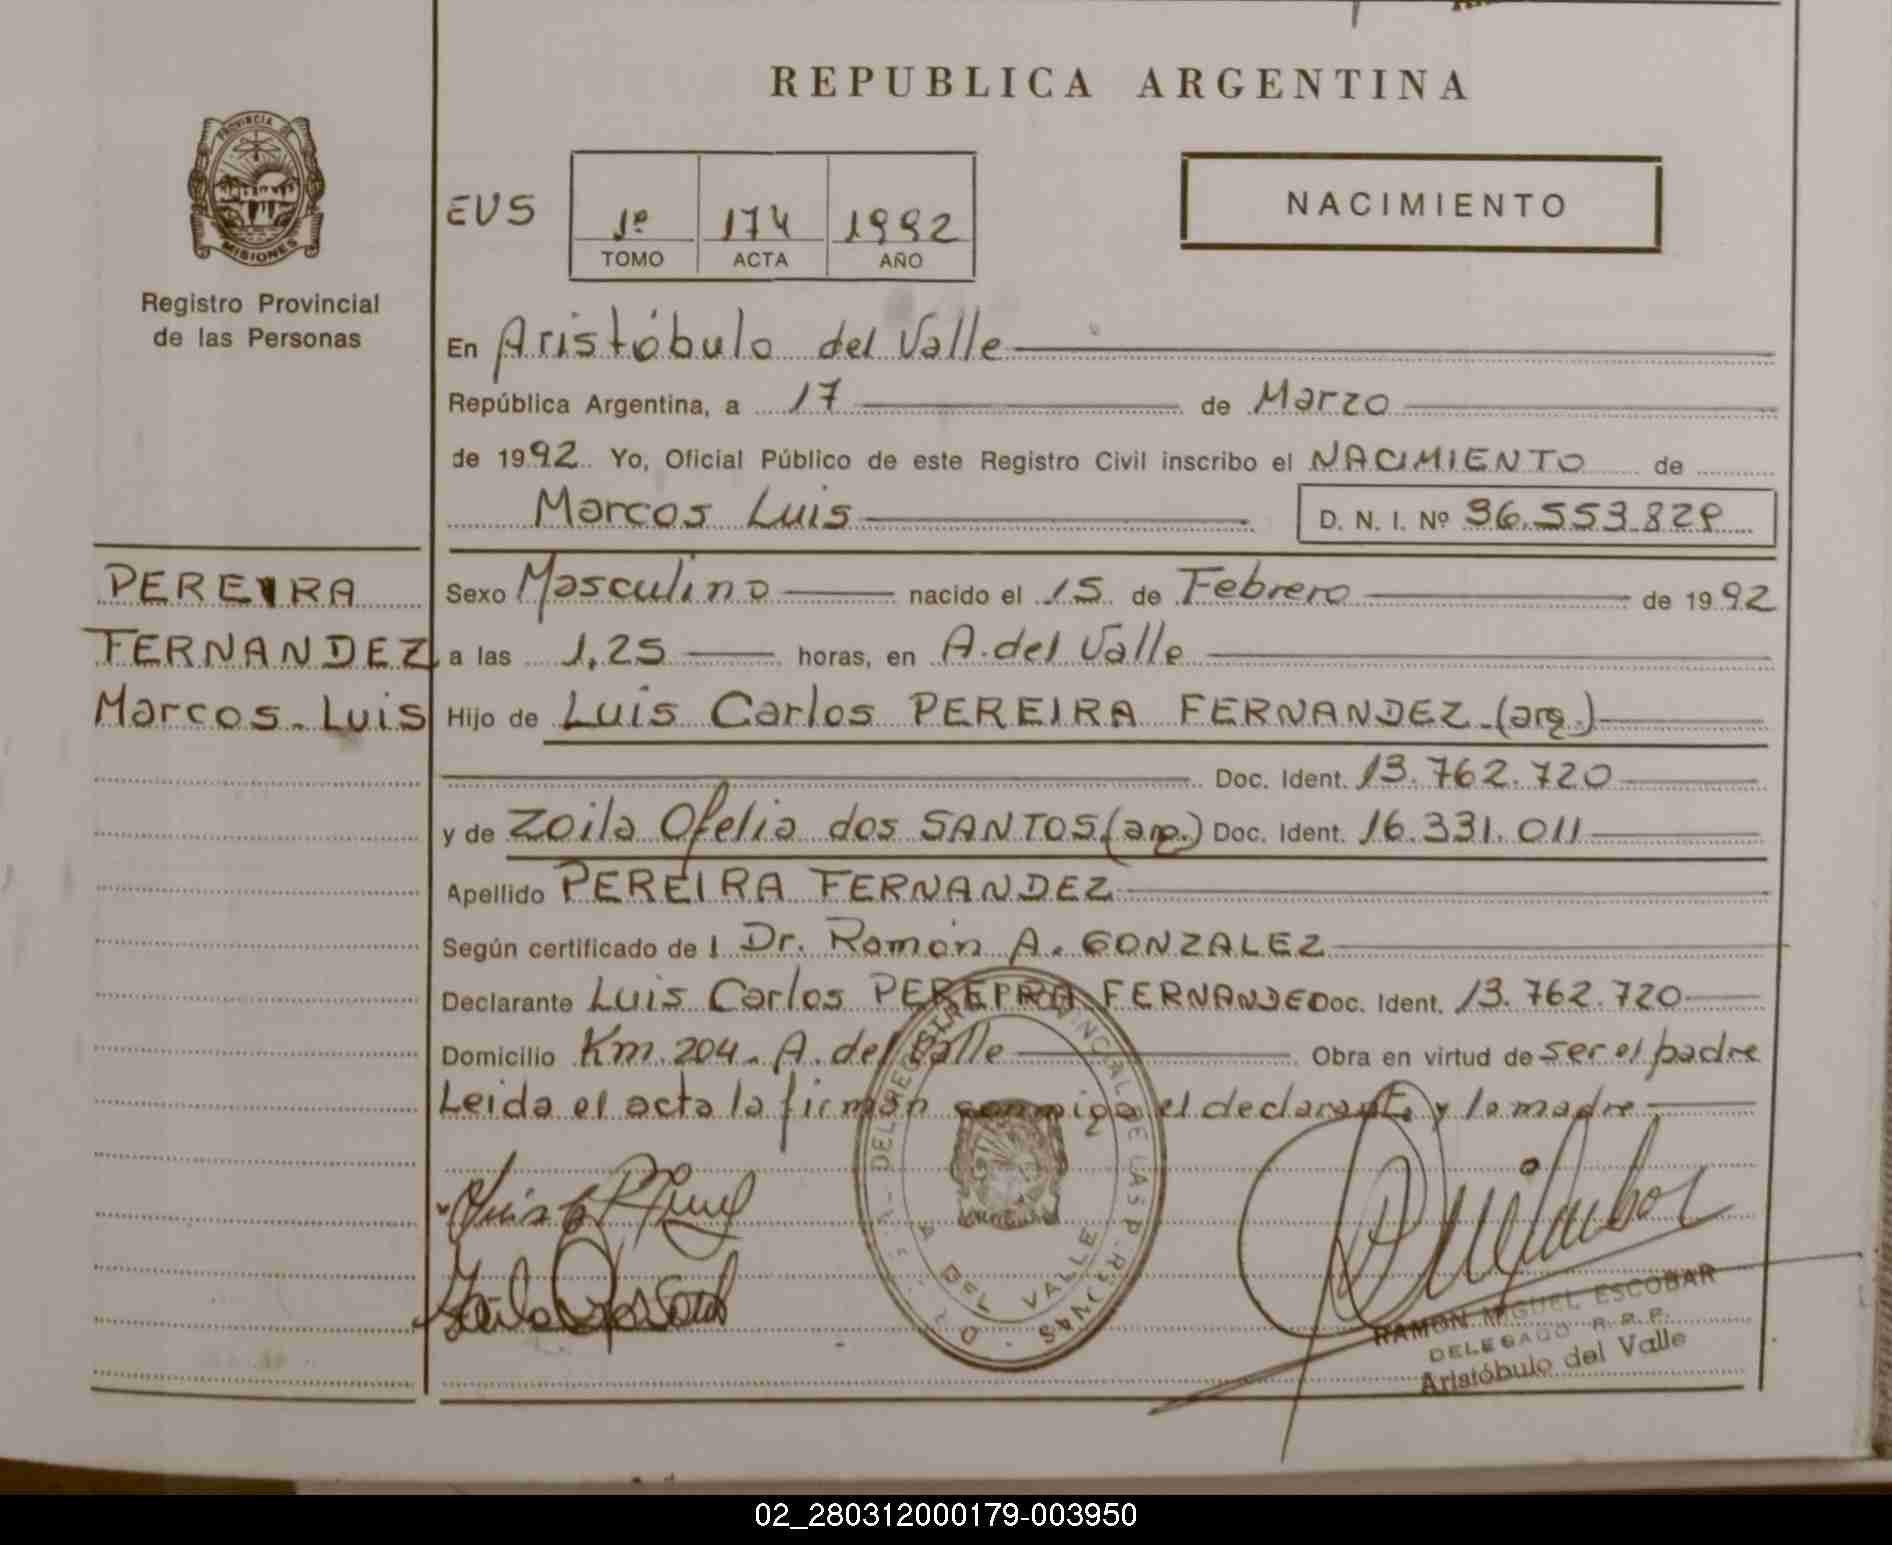 REPUBLICA ARGENTINA
PROVINCIA DE
MISIONES
Registro Provincial
de las Personas
EUS
1º 174 1992
TOMO ACTA AÑO
NACIMIENTO
En Aristóbulo del Valle
República Argentina, a 17 de Marzo
de 1992 Yo, Oficial Público de este Registro Civil inscribo el NACIMIENTO de
Marcos Luis D. N. I. Nº 36.553.829
PEREIRA
FERNANDEZ
Marcos Luis
Sexo Masculino nacido el 15 de Febrero de 1992
a las 1,25 horas, en A. del Valle
Hijo de Luis Carlos PEREIRA FERNANDEZ (arg.)
Doc. Ident. 13.762.720
y de Zoila Ofelia dos SANTOS (arg.) Doc. Ident. 16.331.011
Apellido PEREIRA FERNANDEZ
Según certificado de l Dr. Ramón A. GONZALEZ
Declarante Luis Carlos PEREIRA FERNANDE Doc. Ident. 13.762.720
Domicilio Km. 204. A. del Valle Obra en virtud de ser el padre
Leida el acta la firman conmigo el declarante y la madre.
A DEL VALLE
RAMON MIGUEL ESCOBAR
DELEGADO R.P.P.
Aristóbulo del Valle
02_280312000179-003950